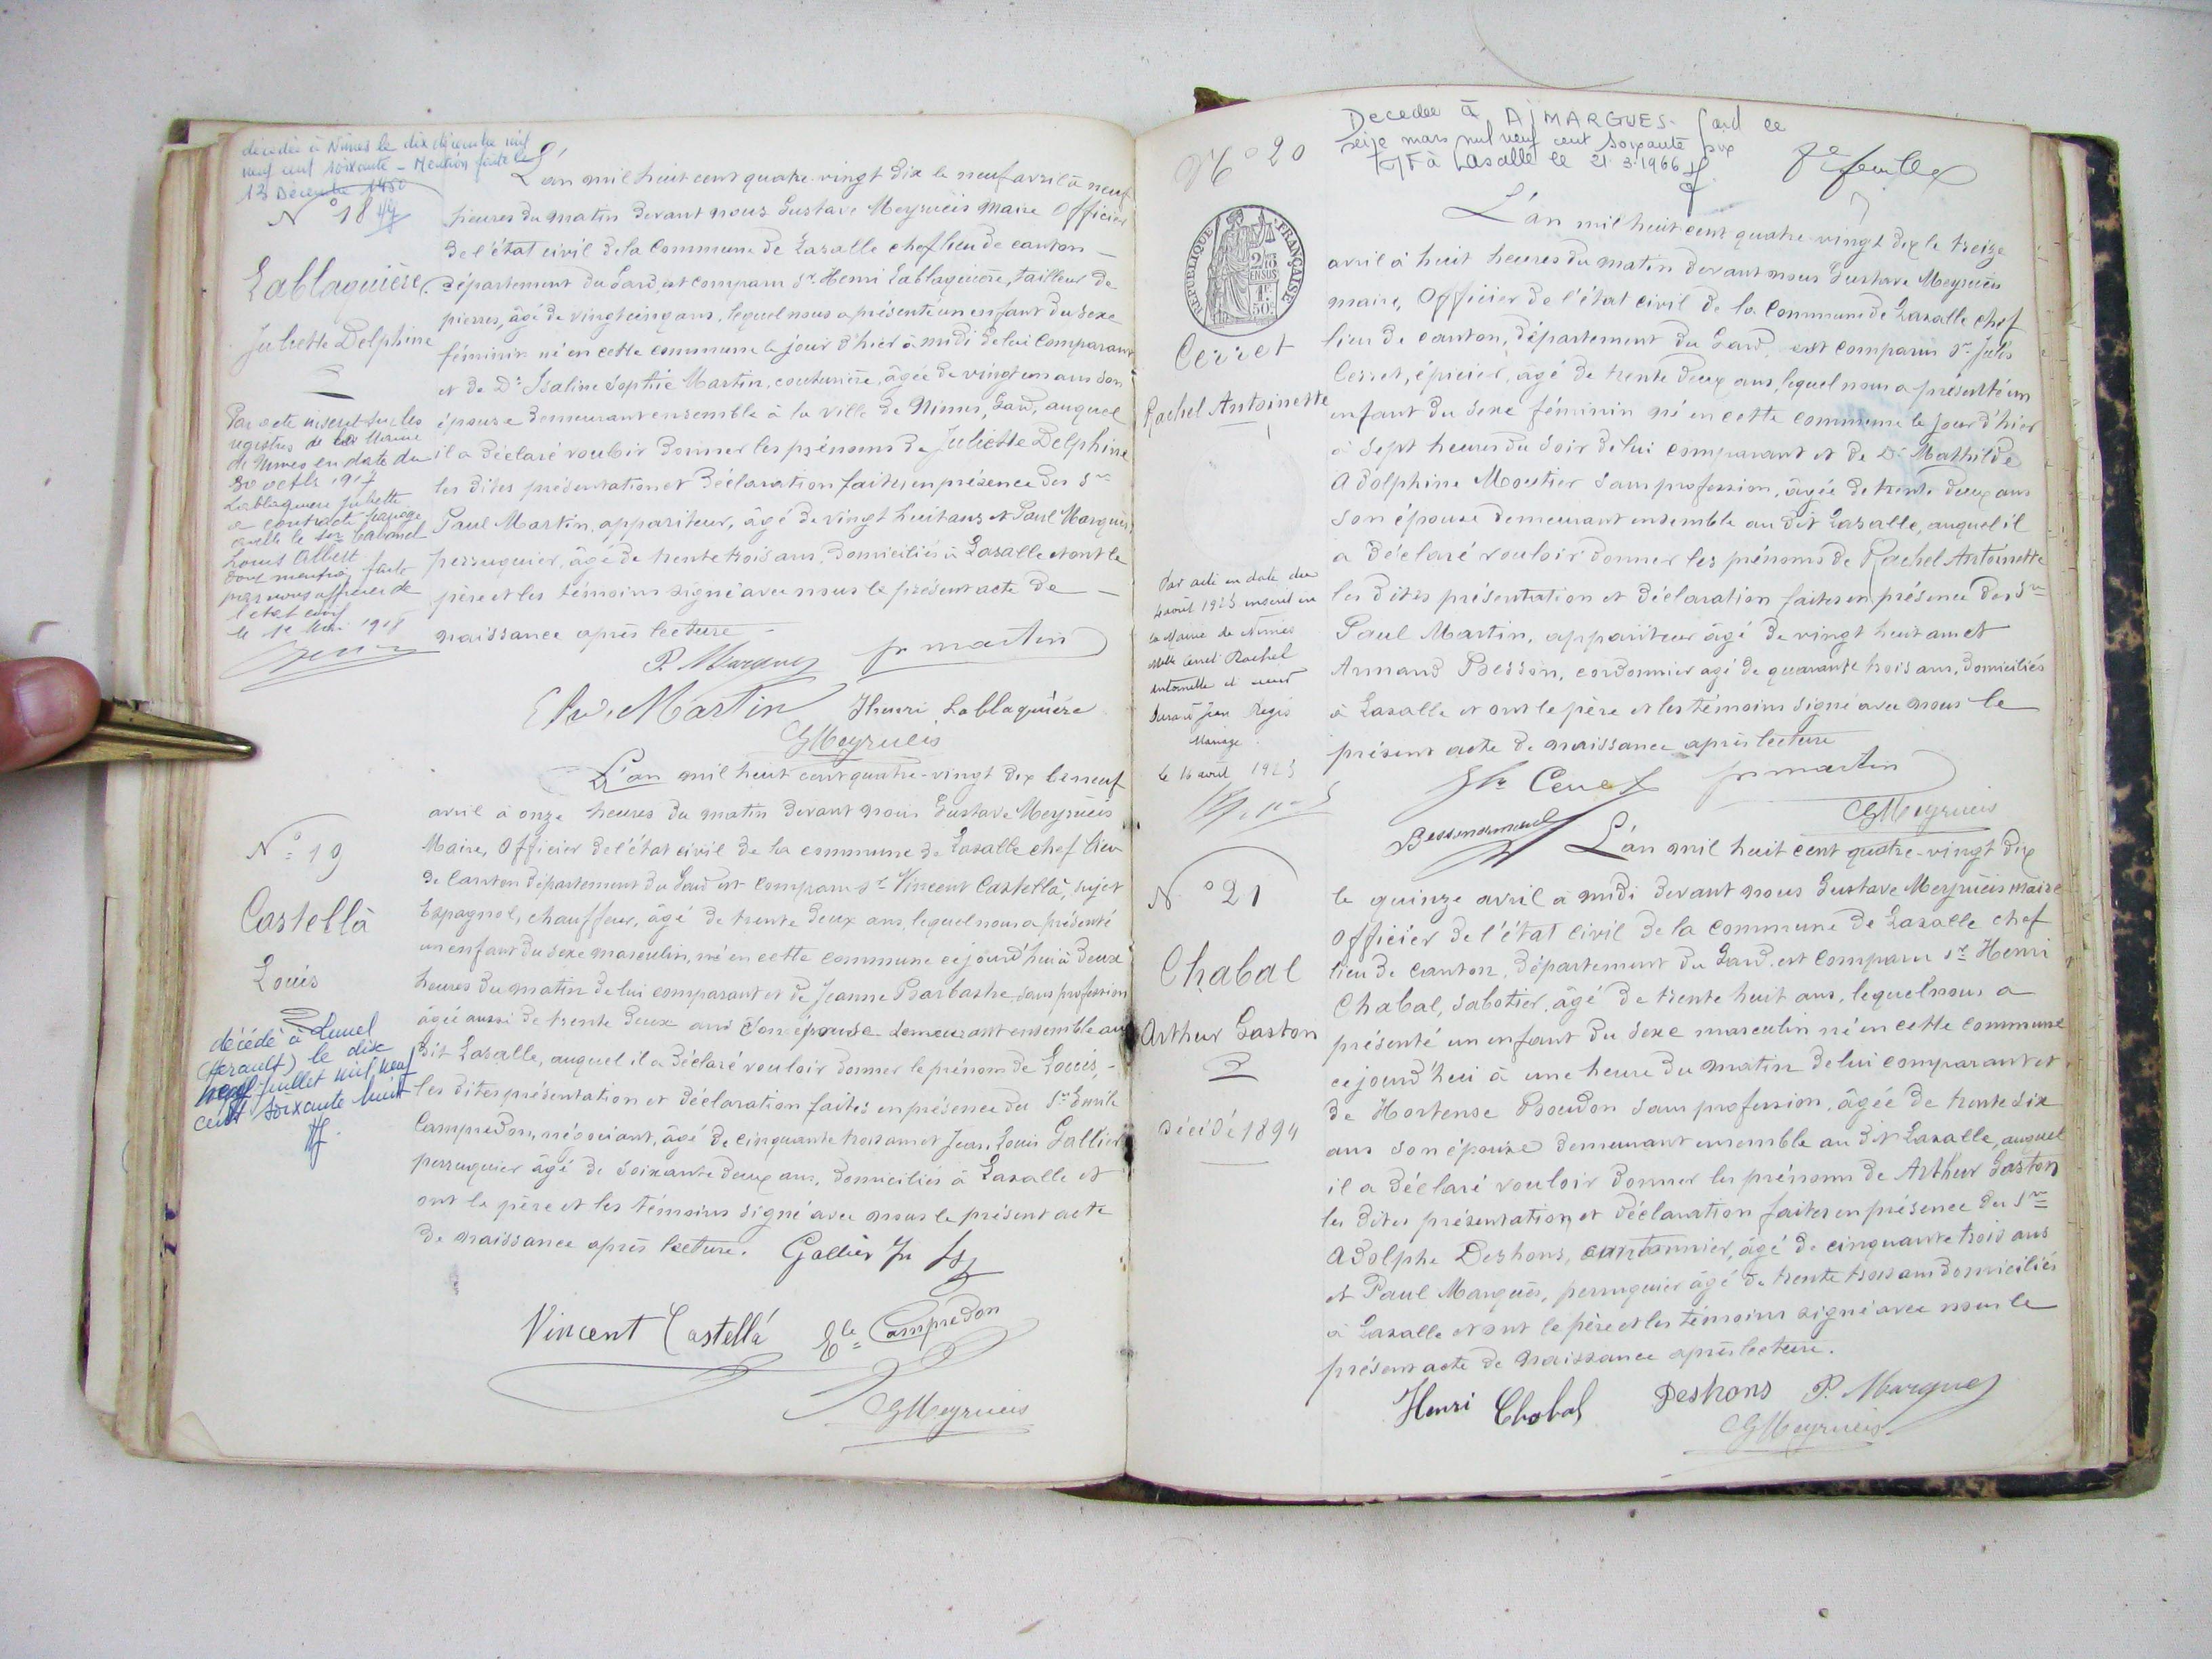 décédée à Nîmes le dix décembre mil
neuf cent soixante - Mention faite le
13 Décembre 1960
N° 18
Lablaquière
Juliette Delphine
Par acte inscrit sur les
registres de la Mairie
de Nimes en date du
30 octbr 1917
Lablaquiere Juliette
a contracté mariage
avec le sr
Louis Albert
Dont mention faite
par nous officier de
l'état civil
le 1e Mai 1918
L'an mil huit cent quatre-vingt dix le neuf avril à neuf
heures du matin devant nous Gustave Meyrueis Maire Officier
de l'état civil de la Commune de Lasalle chef lieu de canton
département du Gard, est comparu Sr Henri Lablaquière, tailleur de
pierres, âgé de vingt cinq ans, lequel nous a présenté un enfant du sexe
féminin né en cette commune le jour d'hier à midi de lui comparant
et de De Isaline Sophie Martin, couturière, âgée de vingt un ans son
épouse demeurant ensemble à la ville de Nimes, Gard, auquel
il a déclaré vouloir donner les prénoms de Juliette Delphine
les dites présentation et déclaration faites en présence des Srs
Paul Martin, appariteur, âgé de vingt huit ans et Paul Marquès
perruquier, âgé de trente trois ans, domiciliés à Lasalle et ont le
père et les témoins signé avec nous le présent acte de
naissance après lecture
P. Marques pr martin
Martin Henri Lablaquière
GMeyrueis
N° 19
Castellà
Louis
décédé à Lunel
(Hérault) le dix
neuf juillet mil neuf
cent soixante huit
L'an mil huit cent quatre-vingt dix le neuf
avril à onze heures du matin devant nous Gustave Meyrueis
Maire, Officier de l'état civil de la commune de Lasalle chef lieu
de Canton département du Gard est comparu Sr Vincent Castellà, sujet
Espagnol, chauffeur, âgé de trente deux ans, lequel nous a présenté
un enfant du sexe masculin, né en cette commune cejourd'hui à deux
heures du matin de lui comparant et de Jeanne Barbastre sans profession
âgée aussi de trente deux ans son épouse demeurant ensemble au
dit Lasalle, auquel il a déclaré vouloir donner le prénom de Louis,
les dites présentation et déclaration faites en présence des Srs Emile
Campredon, négociant, âgé de cinquante trois ans et Jean Louis Gallier
perruquier âgé de soixante deux ans, domiciliés à Lasalle et
ont le père et les témoins signé avec nous le présent acte
de naissance après lecture. Gallier Jn Ls
Vincent Castellá Ele Campredon
GMeyrueis
N° 20
Décédée à AiMARGUES - Gard le
seize mars mil neuf cent soixante six
à Lasalle le 21.3.1966
7e feuillet
RÉPUBLIQUE FRANÇAISE
2/10
EN SUS
1F
50c
Cerret
Rachel Antoinette
Par acte en date du
4 août 1923 inscrit en
la Mairie de Nimes
Melle Cerret Rachel
Antoinette et
Durant Jean Régis
Mariage
Le 16 août 1923
L'an mil huit cent quatre-vingt dix le treize
avril à huit heures du matin devant nous Gustave Meyrueis
maire, Officier de l'état civil de la Commune de Lasalle chef
lieu de canton, département du Gard, est comparu Sr Jules
Cerret, épicier, âgé de trente deux ans, lequel nous a présenté un
enfant du sexe féminin né en cette commune le jour d'hier
à sept heures du soir de lui comparant et de De Mathilde
Adolphine Moutier sans profession, âgée de trente deux ans
son épouse demeurant ensemble au dit Lasalle, auquel il
a déclaré vouloir donner les prénoms de Rachel Antoinette
les dites présentation et déclaration faites en présence des Srs
Paul Martin, appariteur âgé de vingt huit ans et
Armand Besson, cordonnier âgé de quarante trois ans, domiciliés
à Lasalle et ont le père et les témoins signé avec nous le
présent acte de naissance après lecture
Cerret pr martin
Besson armand GMeyrueis
N° 21
Chabal
Arthur Gaston
décédé 1894
L'an mil huit cent quatre-vingt dix
le quinze avril à midi devant nous Gustave Meyrueis maire
Officier de l'état civil de la commune de Lasalle chef
lieu de canton, département du Gard est comparu Sr Henri
Chabal, sabotier, âgé de trente huit ans, lequel nous a
présenté un enfant du sexe masculin né en cette commune
cejourd'hui à une heure du matin de lui comparant et
de Hortense Boudon sans profession, âgée de trente six
ans son épouse demeurant ensemble au dit Lasalle, auquel
il a déclaré vouloir donner les prénoms de Arthur Gaston
les dites présentation et déclaration faites en présence des Srs
Adolphe Deshons, cantonnier, âgé de cinquante trois ans
et Paul Marquès, perruquier âgé de trente trois ans domiciliés
à Lasalle et ont le père et les témoins signé avec nous le
présent acte de naissance après lecture.
Henri Chabal Deshons P. Marques
GMeyrueis